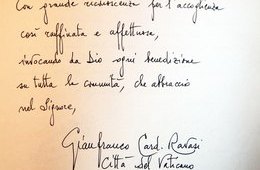 Con grande riconoscenza per l'accoglienza
così raffinata e affettuosa,
invocando da Dio ogni benedizione
su tutta la comunità, che abbraccio
nel Signore,
Gianfranco Card. Ravasi
Città del Vaticano